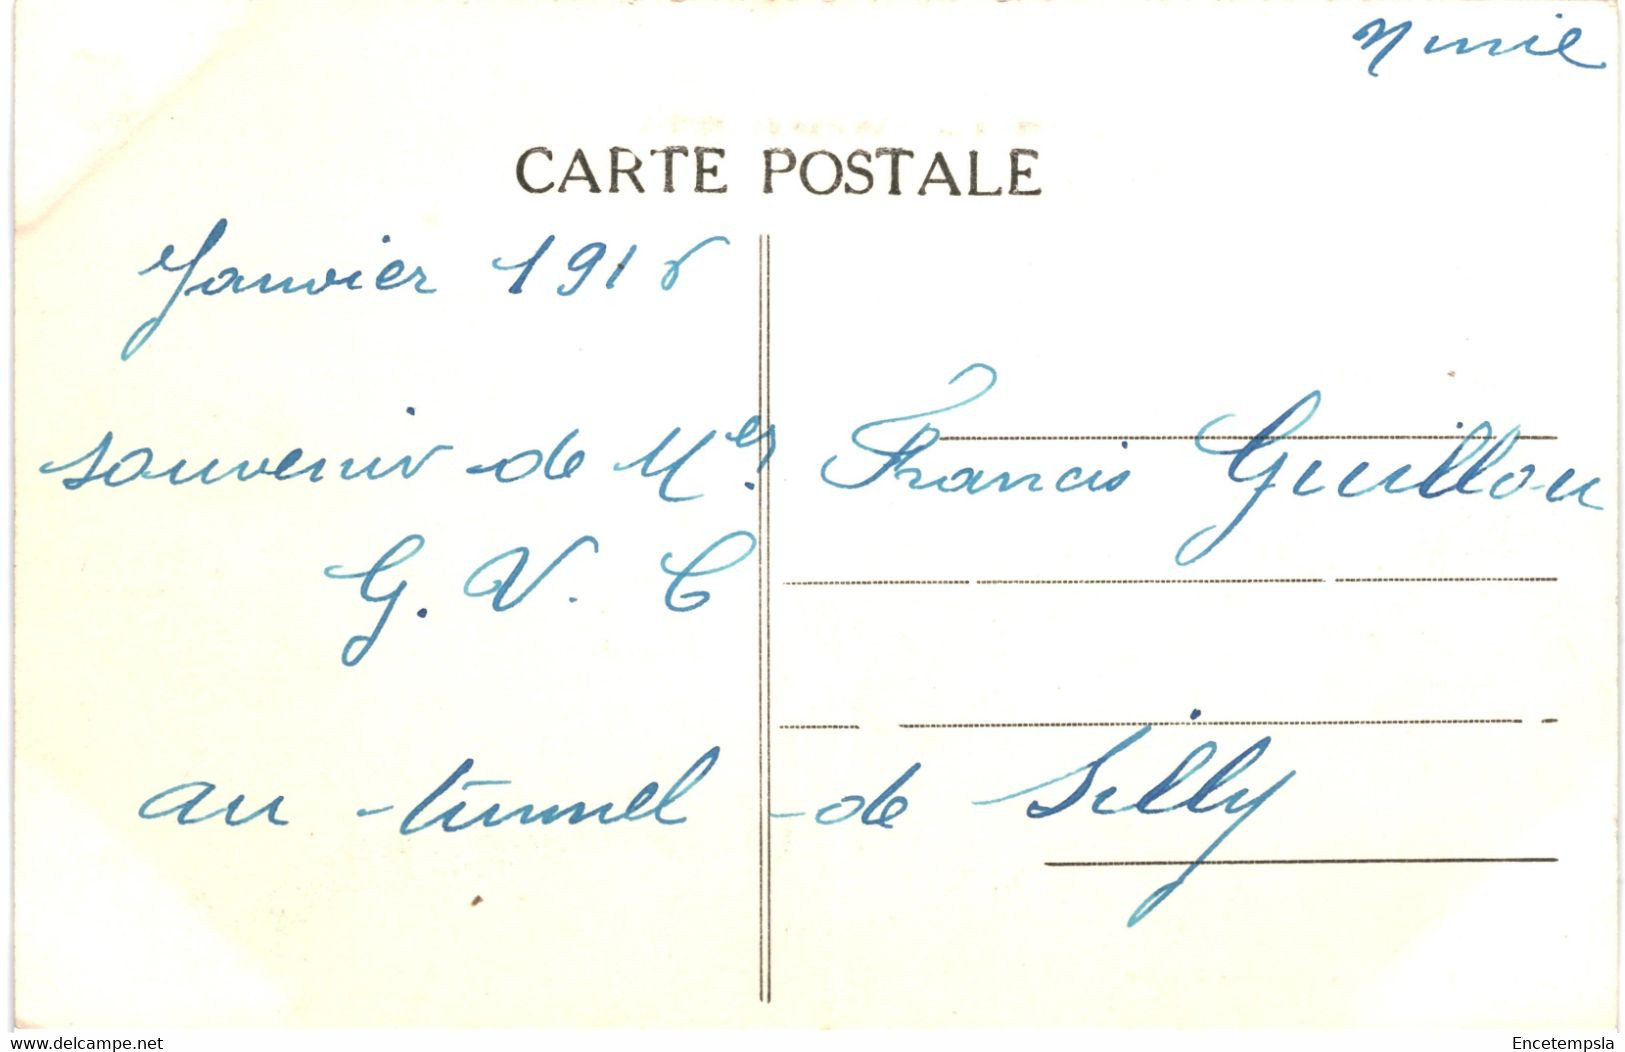 CARTE POSTALE
Janvier 191
souvenir de Mr Francis Guillou
G. V. C
au tunnel de Silly
www.delcampe.net
Encetempsla